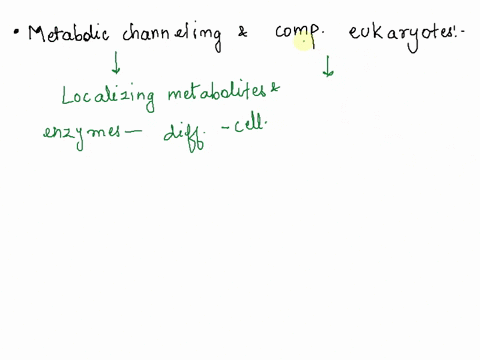 • Metabolic channeling & comp. eukaryotes:-
Localizing metabolites &
enzymes— diff. -cell.